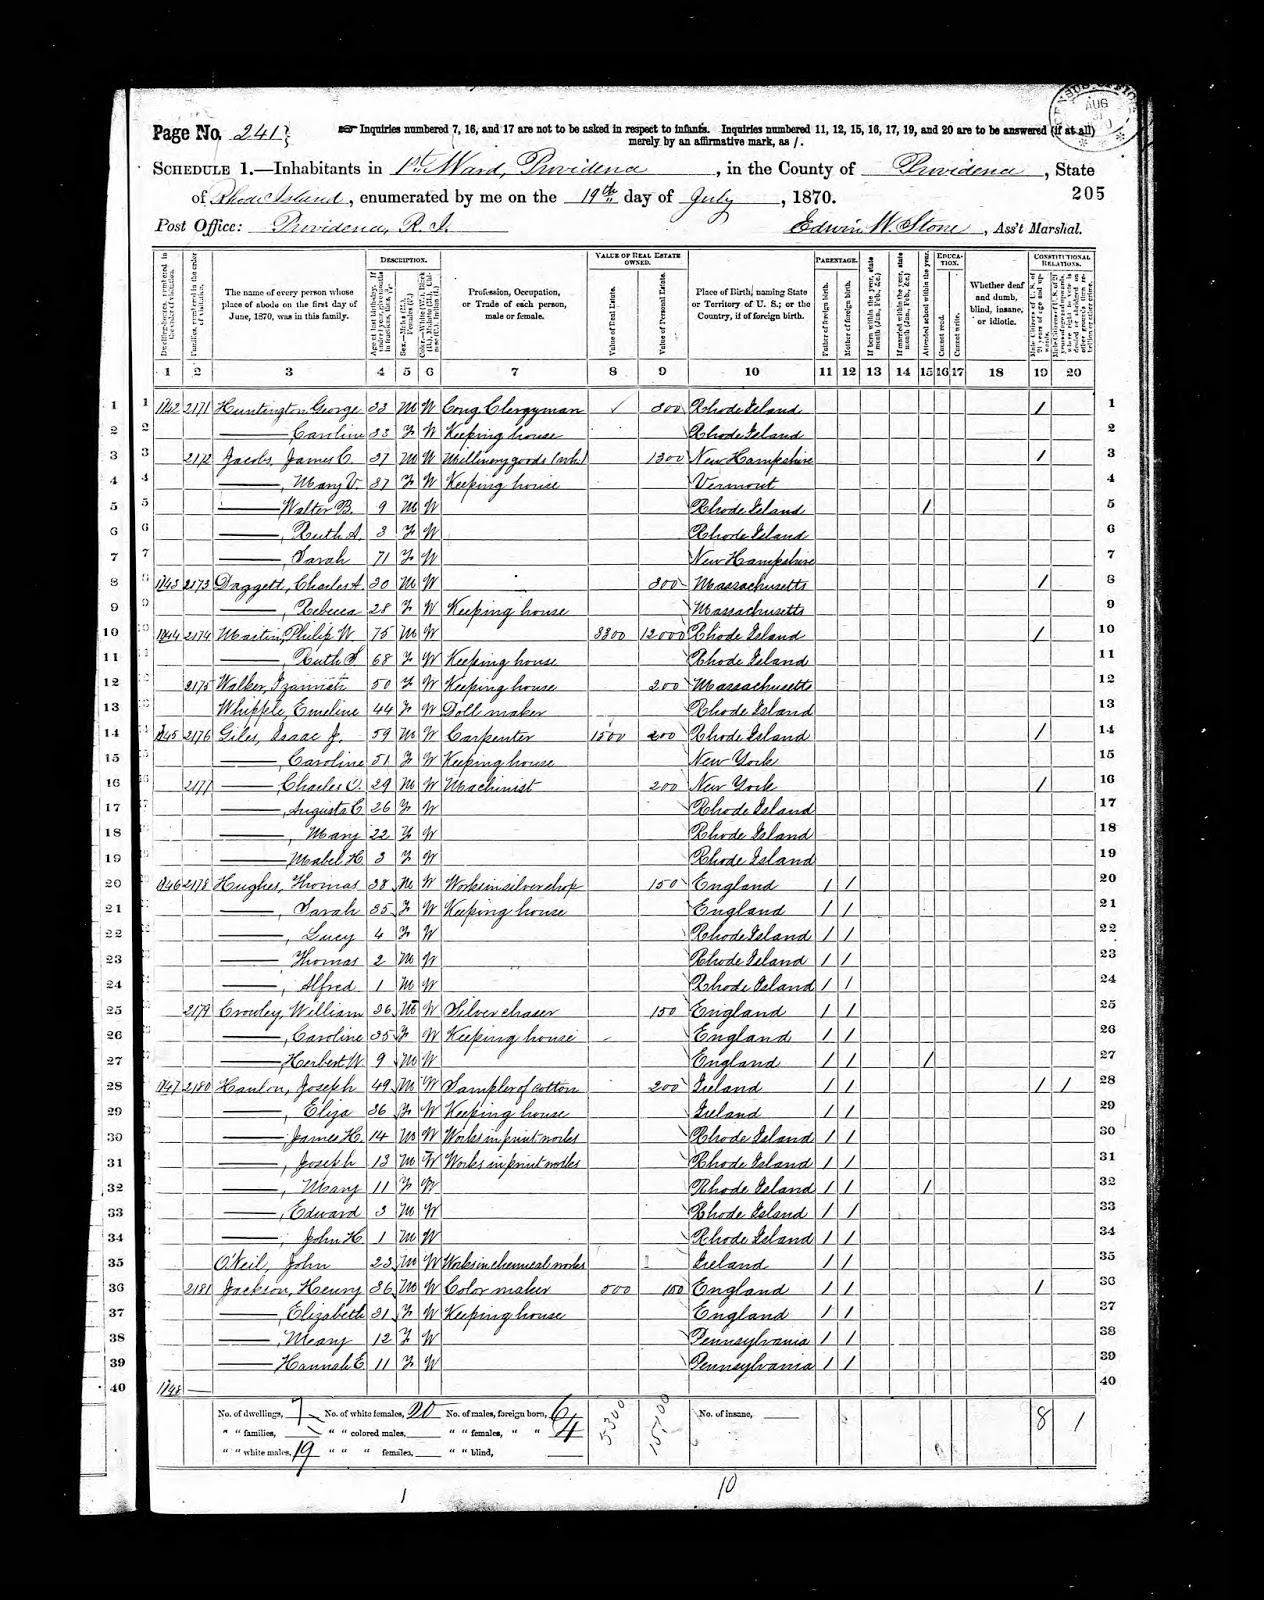 CENSUS OFFICE AUG
Page No. 241
☞ Inquiries numbered 7, 16, and 17 are not to be asked in respect to infants. Inquiries numbered 11, 12, 15, 16, 17, 19, and 20 are to be answered (if at all)
merely by an affirmative mark, as /.
SCHEDULE 1.—Inhabitants in 1st Ward, Providence, in the County of Providence, State
205
of Rhode Island, enumerated by me on the 19th day of July, 1870.
Post Office: Providence, R. I. Edwin W. Stone, Ass't Marshal.
DESCRIPTION. VALUE OF REAL ESTATE OWNED. PARENTAGE. EDUCATION. CONSTITUTIONAL RELATIONS.
Dwelling-houses, numbered in the order of visitation. Families, numbered in the order of visitation. The name of every person whose place of abode on the first day of June, 1870, was in this family. Age at last birthday. If under 1 year, give months in fractions, thus, 3/12. Sex.—Males (M.), Females (F.) Color.—White (W.), Black (B.), Mulatto (M.), Chinese (C.), Indian (I.) Profession, Occupation, or Trade of each person, male or female. Value of Real Estate. Value of Personal Estate. Place of Birth, naming State or Territory of U. S.; or the Country, if of foreign birth. Father of foreign birth. Mother of foreign birth. If born within the year, state month (Jan., Feb., &c.) If married within the year, state month (Jan., Feb., &c.) Attended school within the year. Cannot read. Cannot write. Whether deaf and dumb, blind, insane, or idiotic. Male Citizens of U. S. of 21 years of age and upwards.
1 2 3 4 5 6 7 8 9 10 11 12 13 14 15 16 17 18 19 20
1 1 1742 2171 Huntington George 33 M W Cong. Clergyman 800 Rhode Island / 1
2 2 ——, Caroline 33 F W Keeping house Rhode Island 2
3 3 2172 Jacobs, James C. 37 M W Millinery goods 1300 New Hampshire / 3
4 4 ——, Mary V. 37 F W Keeping house Vermont 4
5 5 —— Walter B. 9 M W Rhode Island / 5
6 6 ——, Ruth A. 3 F W Rhode Island 6
7 7 ——, Sarah 71 F W New Hampshire 7
8 1743 2173 Daggett, Charles A. 30 M W 300 Massachusetts / 8
9 ——, Rebecca 28 F W Keeping house Massachusetts 9
10 1744 2174 Martin, Philip W. 75 M W 3300 12000 Rhode Island / 10
11 ——, Ruth S. 68 F W Keeping house Rhode Island 11
12 2175 Walker, 50 F W Keeping house 200 Massachusetts 12
13 Whipple, Emeline 44 F W Doll maker Rhode Island 13
14 1745 2176 Giles, Isaac J. 59 M W Carpenter 1500 200 Rhode Island / 14
15 ——, Caroline 51 F W Keeping house New York 15
16 2177 ——, Charles O. 29 M W Machinist 200 New York / 16
17 ——, Augusta C 26 F W Rhode Island 17
18 ——, Mary 22 F W Rhode Island 18
19 —— Mabel H 3 F W Rhode Island 19
20 1746 2178 Hughes, Thomas 38 M W Works in silver shop 150 England / / 20
21 ——, Sarah 35 F W Keeping house England / / 21
22 ——, Lucy 4 F W Rhode Island / / 22
23 ——, Thomas 2 M W Rhode Island / / 23
24 ——, Alfred 1 M W Rhode Island / / 24
25 2179 Crowley, William 36 M W Silver chaser 150 England / / 25
26 ——, Caroline 35 F W Keeping house England / / 26
27 —— Herbert W. 9 M W England / / / 27
28 1747 2180 Hanlon, Joseph 49 M W Sampler of cotton 200 Ireland / / / / 28
29 ——, Eliza 36 F W Keeping house Ireland / / 29
30 ——, James H. 14 M W Works in print works Rhode Island / / 30
31 ——, Joseph 13 M W Works in print works Rhode Island / / 31
32 ——, Mary 11 F W Rhode Island / / / 32
33 ——, Edward 3 M W Rhode Island / / 33
34 ——, John H 1 M W Rhode Island / / 34
35 O'Neil, John 23 M W Works in chemical works Ireland / / 35
36 2181 Jackson, Henry 36 M W Color maker 500 150 England / / / 36
37 ——, Elizabeth 31 F W Keeping house England / / 37
38 ——, Mary 12 F W Pennsylvania / / 38
39 —— Hannah E 11 F W Pennsylvania / / 39
40 1748 —— 40
No. of dwellings, 7 No. of white females, 20 No. of males, foreign born, 6 5300 15,700 No. of insane, 8 1
" " families, " " colored males, " " females, " " 4
" " white males, 19 " " " females, " " blind,
1 10